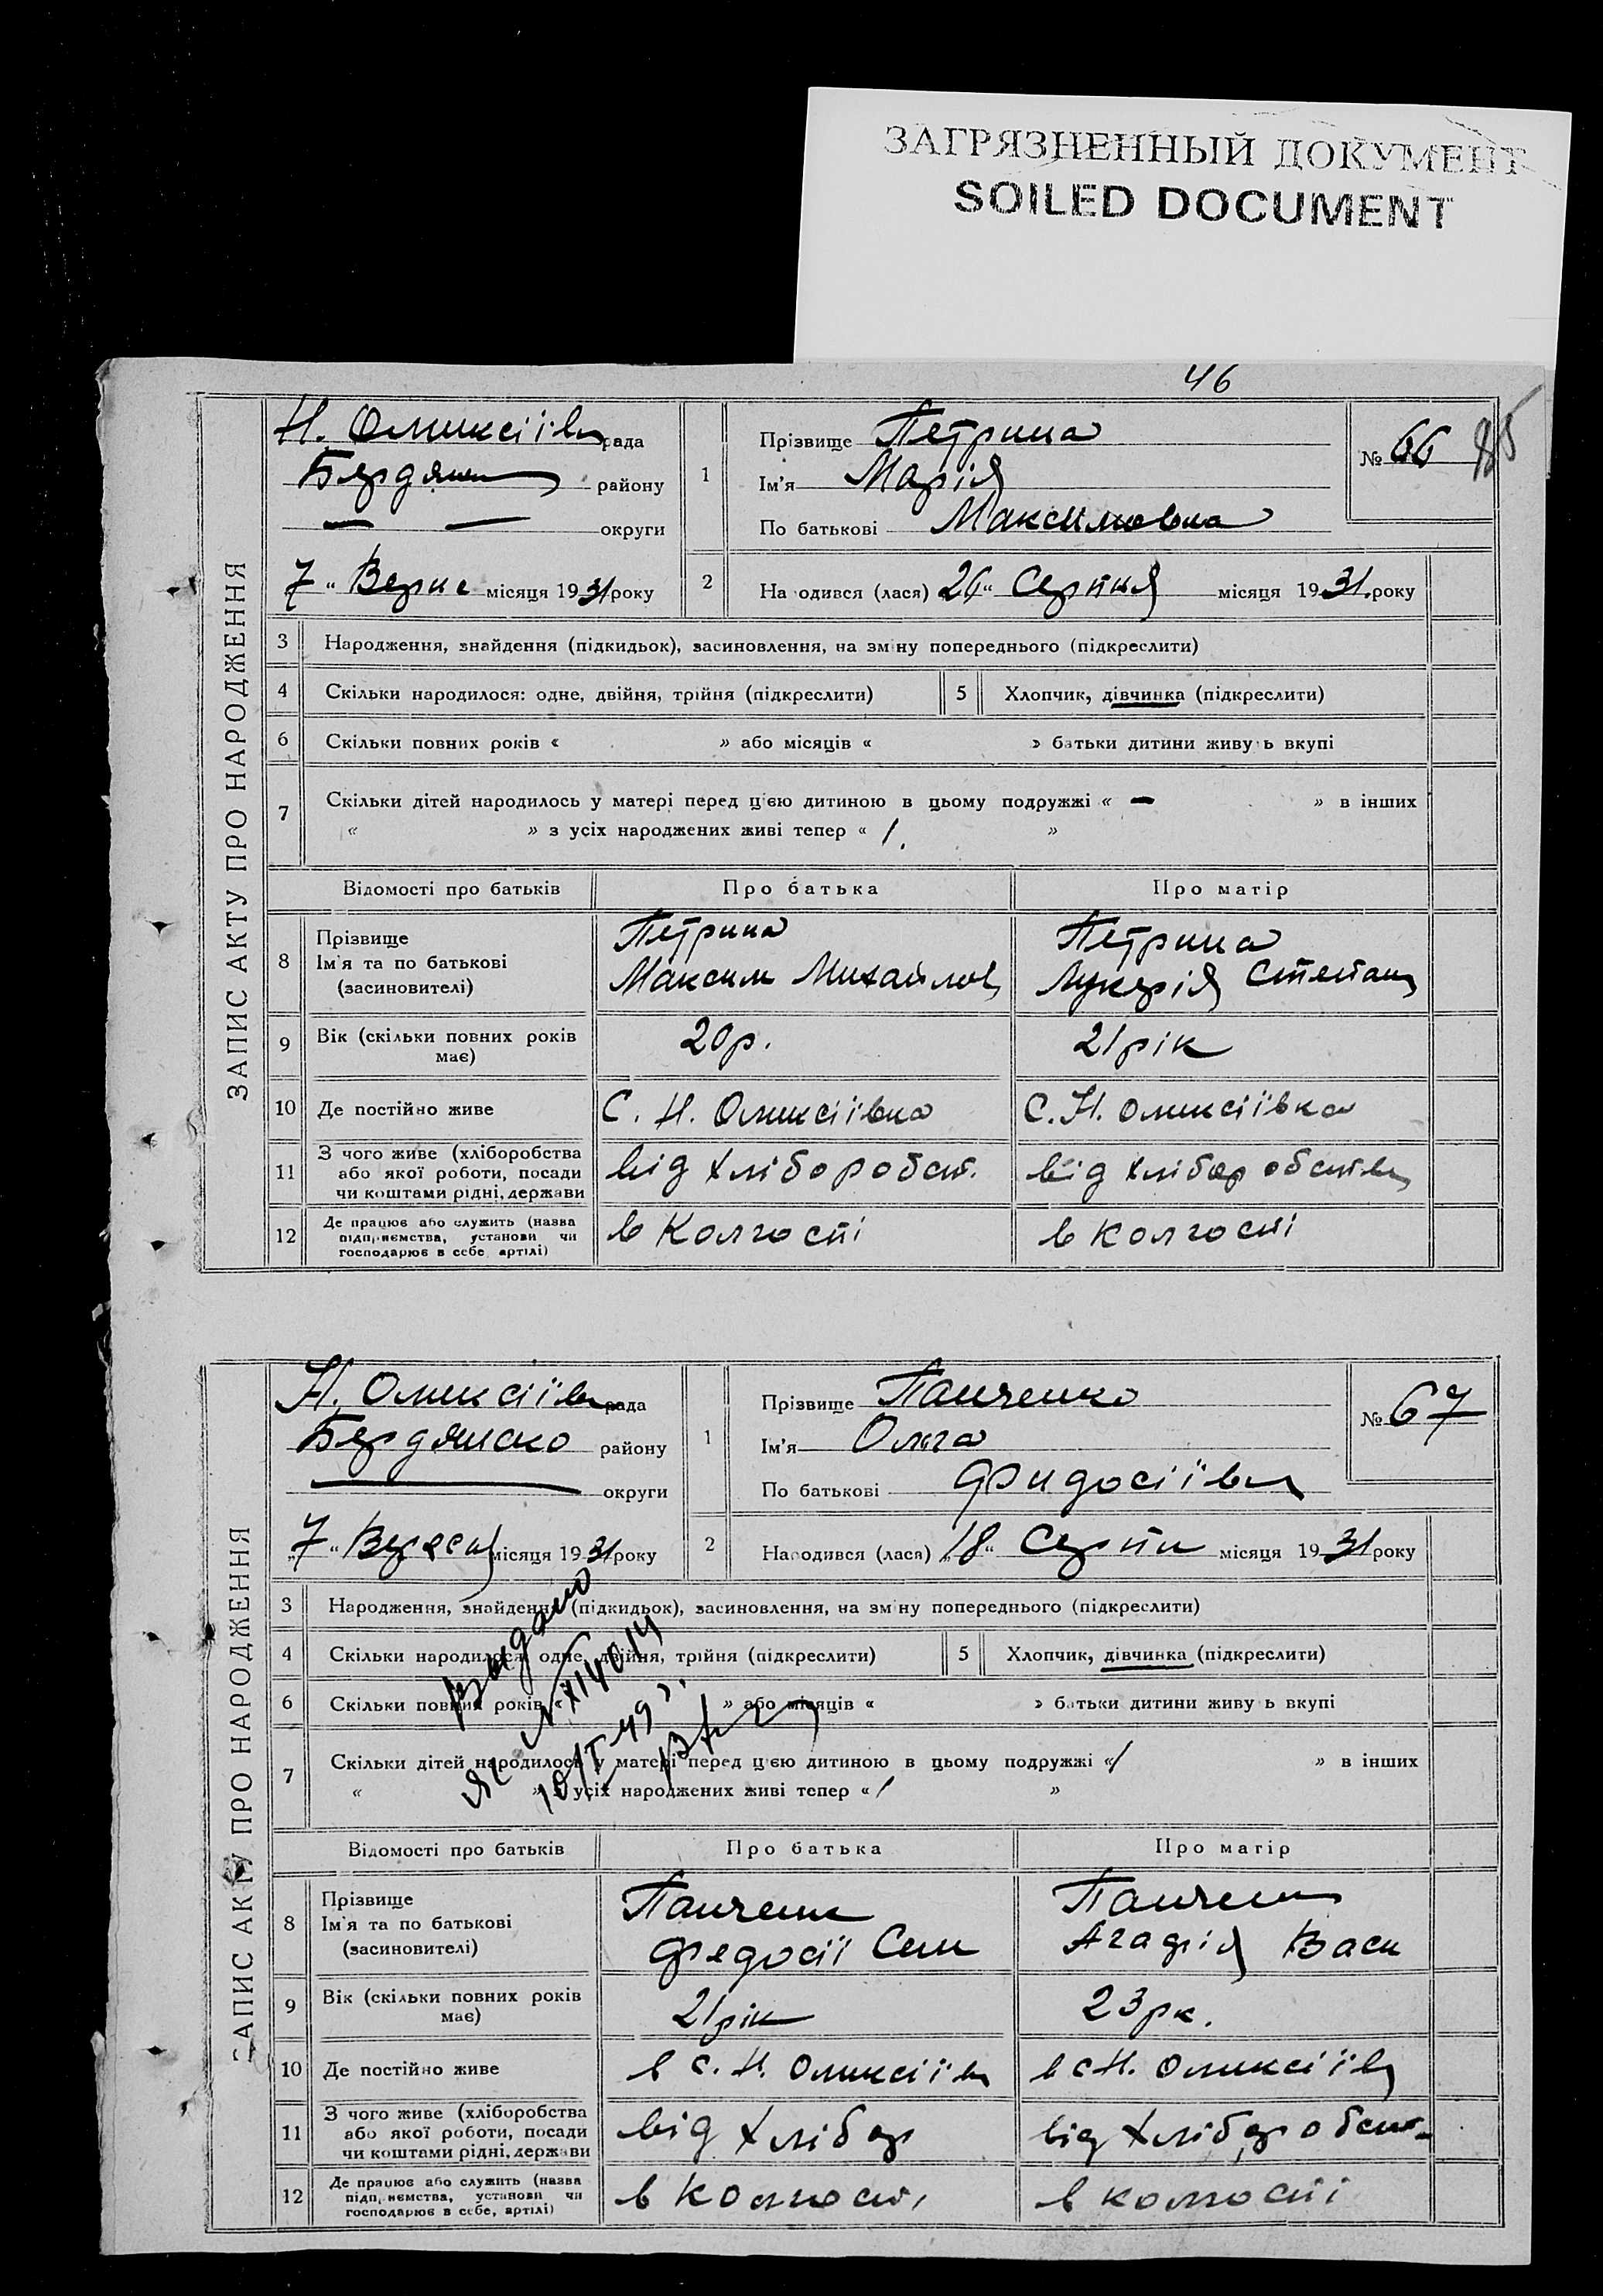 ЗАГРЯЗНЕННЫЙ ДОКУМЕНТ
SOILED DOCUMENT
46
ЗАПИС АКТУ ПРО НАРОДЖЕННЯ
Н. Оликсіїв рада
Бердян району
— — округи
7 " Верес місяця 1931 року
1 Прізвище Петрина
Ім'я Марія
По батькові Максимовна
№ 66
2 На одився (лася) 26 " Серпня місяця 1931. року
3 Народження, знайдення (підкидьок), засиновлення, на зміну попереднього (підкреслити)
4 Скільки народилося: одне, двійня, трійня (підкреслити) 5 Хлопчик, дівчинка (підкреслити)
6 Скільки повних років « » або місяців « » батьки дитини живуть вкупі
7 Скільки дітей народилось у матері перед цією дитиною в цьому подружжі « — » в інших
« » з усіх народжених живі тепер « 1. »
Відомості про батьків Про батька Про матір
8 Прізвище Ім'я та по батькові (засиновителі)
Петрина Максим Михайлов
Петрина Лукерія Степан
9 Вік (скільки повних років має) 20 р. 21 рік
10 Де постійно живе С. Н. Оликсіївка С. Н. Оликсіївка
11 З чого живе (хліборобства або якої роботи, посади чи коштами рідні, держави від хліборобст. від хліборобств
12 Де працює або служить (назва підприємства, установи чи господарює в себе, артілі) в Колгоспі в колгоспі
ЗАПИС АКТУ ПРО НАРОДЖЕННЯ
Н. Оликсіїв рада
Бердянско району
— округи
„7 " Вересня місяця 1931 року
1 Прізвище Панченко
Ім'я Ольга
По батькові Фидосіївн
№ 67
2 Народився (лася) „18 " Серпн місяця 1931 року
3 Народження, знайдення (підкидьок), засиновлення, на зміну попереднього (підкреслити)
4 Скільки народилося: одне, двійня, трійня (підкреслити) 5 Хлопчик, дівчинка (підкреслити)
6 Скільки повних років « » або місяців « » батьки дитини живуть вкупі
7 Скільки дітей народилось у матері перед цією дитиною в цьому подружжі « 1 » в інших
« » з усіх народжених живі тепер « 1 »
Выдано
10/I 49 г.
Відомості про батьків Про батька Про матір
8 Прізвище Ім'я та по батькові (засиновителі)
Панченк Федосії Сем
Панченк Агафія Васи
9 Вік (скільки повних років має) 21 рік 23 рк.
10 Де постійно живе в с. Н. Оликсіїв в с Н. Оликсіїв
11 З чого живе (хліборобства або якої роботи, посади чи коштами рідні, держави від хлібор від хлібороbст.
12 Де працює або служить (назва підприємства, установи чи господарює в себе, артілі) в колгосп в колгоспі